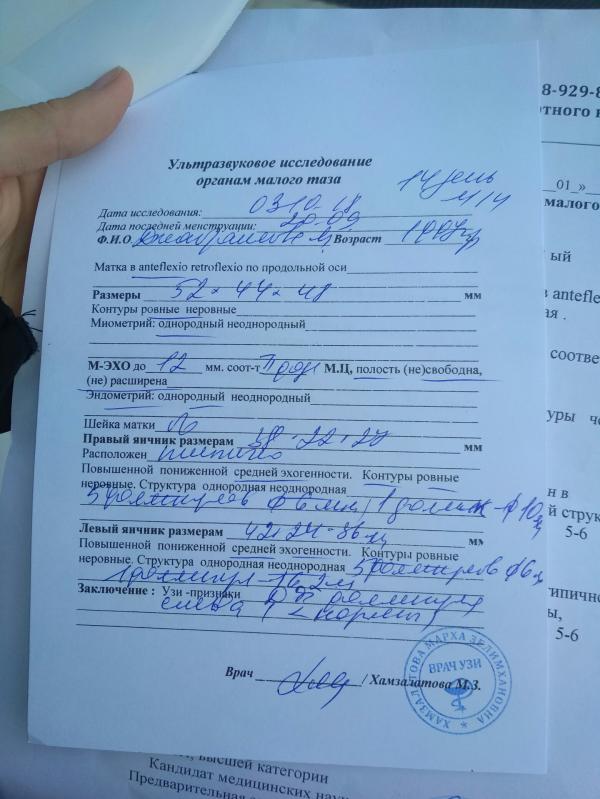 8-929-8
Ультразвуковое исследование
органам малого таза
14 день
М/Ц
Дата исследования: 03.10.18
Дата последней менструации: 20.09
Ф.И.О Возраст
_01_»
малого
Матка в anteflexio retroflexio по продольной оси
ый
Размеры 52 × 44 × 48 мм
в antefle
Контуры ровные неровные
ая .
Миометрий: однородный неоднородный
соотве
М-ЭХО до 12 мм. соот-т М.Ц, полость (не)свободна,
(не) расширена
Эндометрий: однородный неоднородный
уры че
Шейка матки
Правый яичник размерам 38 · 22 · 20 мм
Расположен типично
Повышенной пониженной средней эхогенности. Контуры ровные
н в
неровные. Структура однородная неоднородная
й струк
5 фолликулов ф 6 мм
5-6
Левый яичник размерам мм
Повышенной пониженной средней эхогенности. Контуры ровные
неровные. Структура однородная неоднородная 5 фолликулов ф 6
типичн
ы,
Заключение : Узи -признаки фолликула
5-6
слева
Врач / Хамзалатова М.З.
ХАМЗАЛАТОВА МАРХА ЗЕЛИМХАНОВНА
ВРАЧ УЗИ
, высшей категории
Кандидат медицинских наук
Предварительная